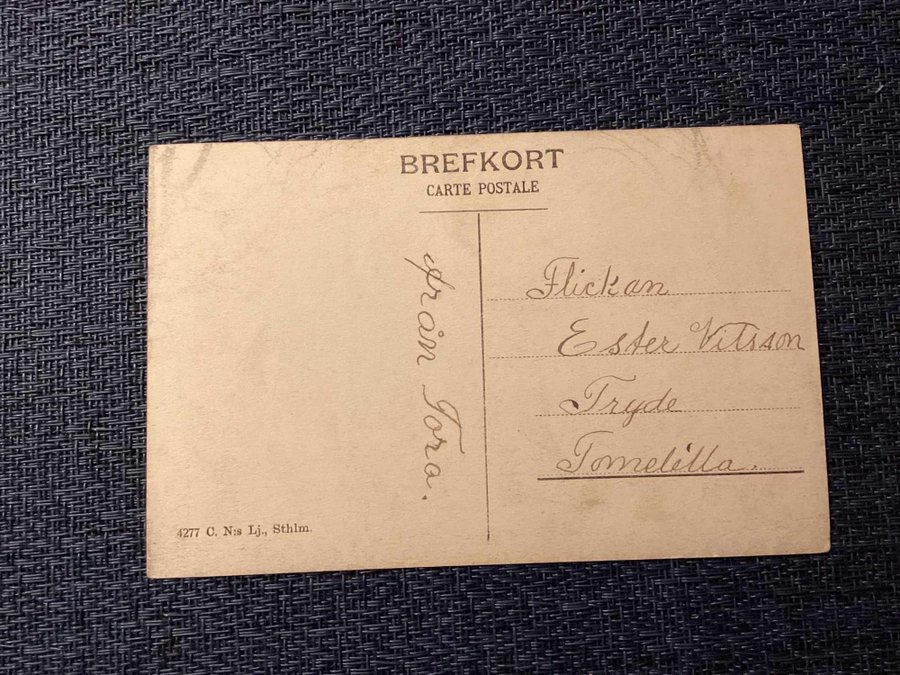 BREFKORT
CARTE POSTALE
från Tora.
Flickan
Ester Nilsson
Tryde
Tomelilla.
4277 C. N:s Lj., Sthlm.